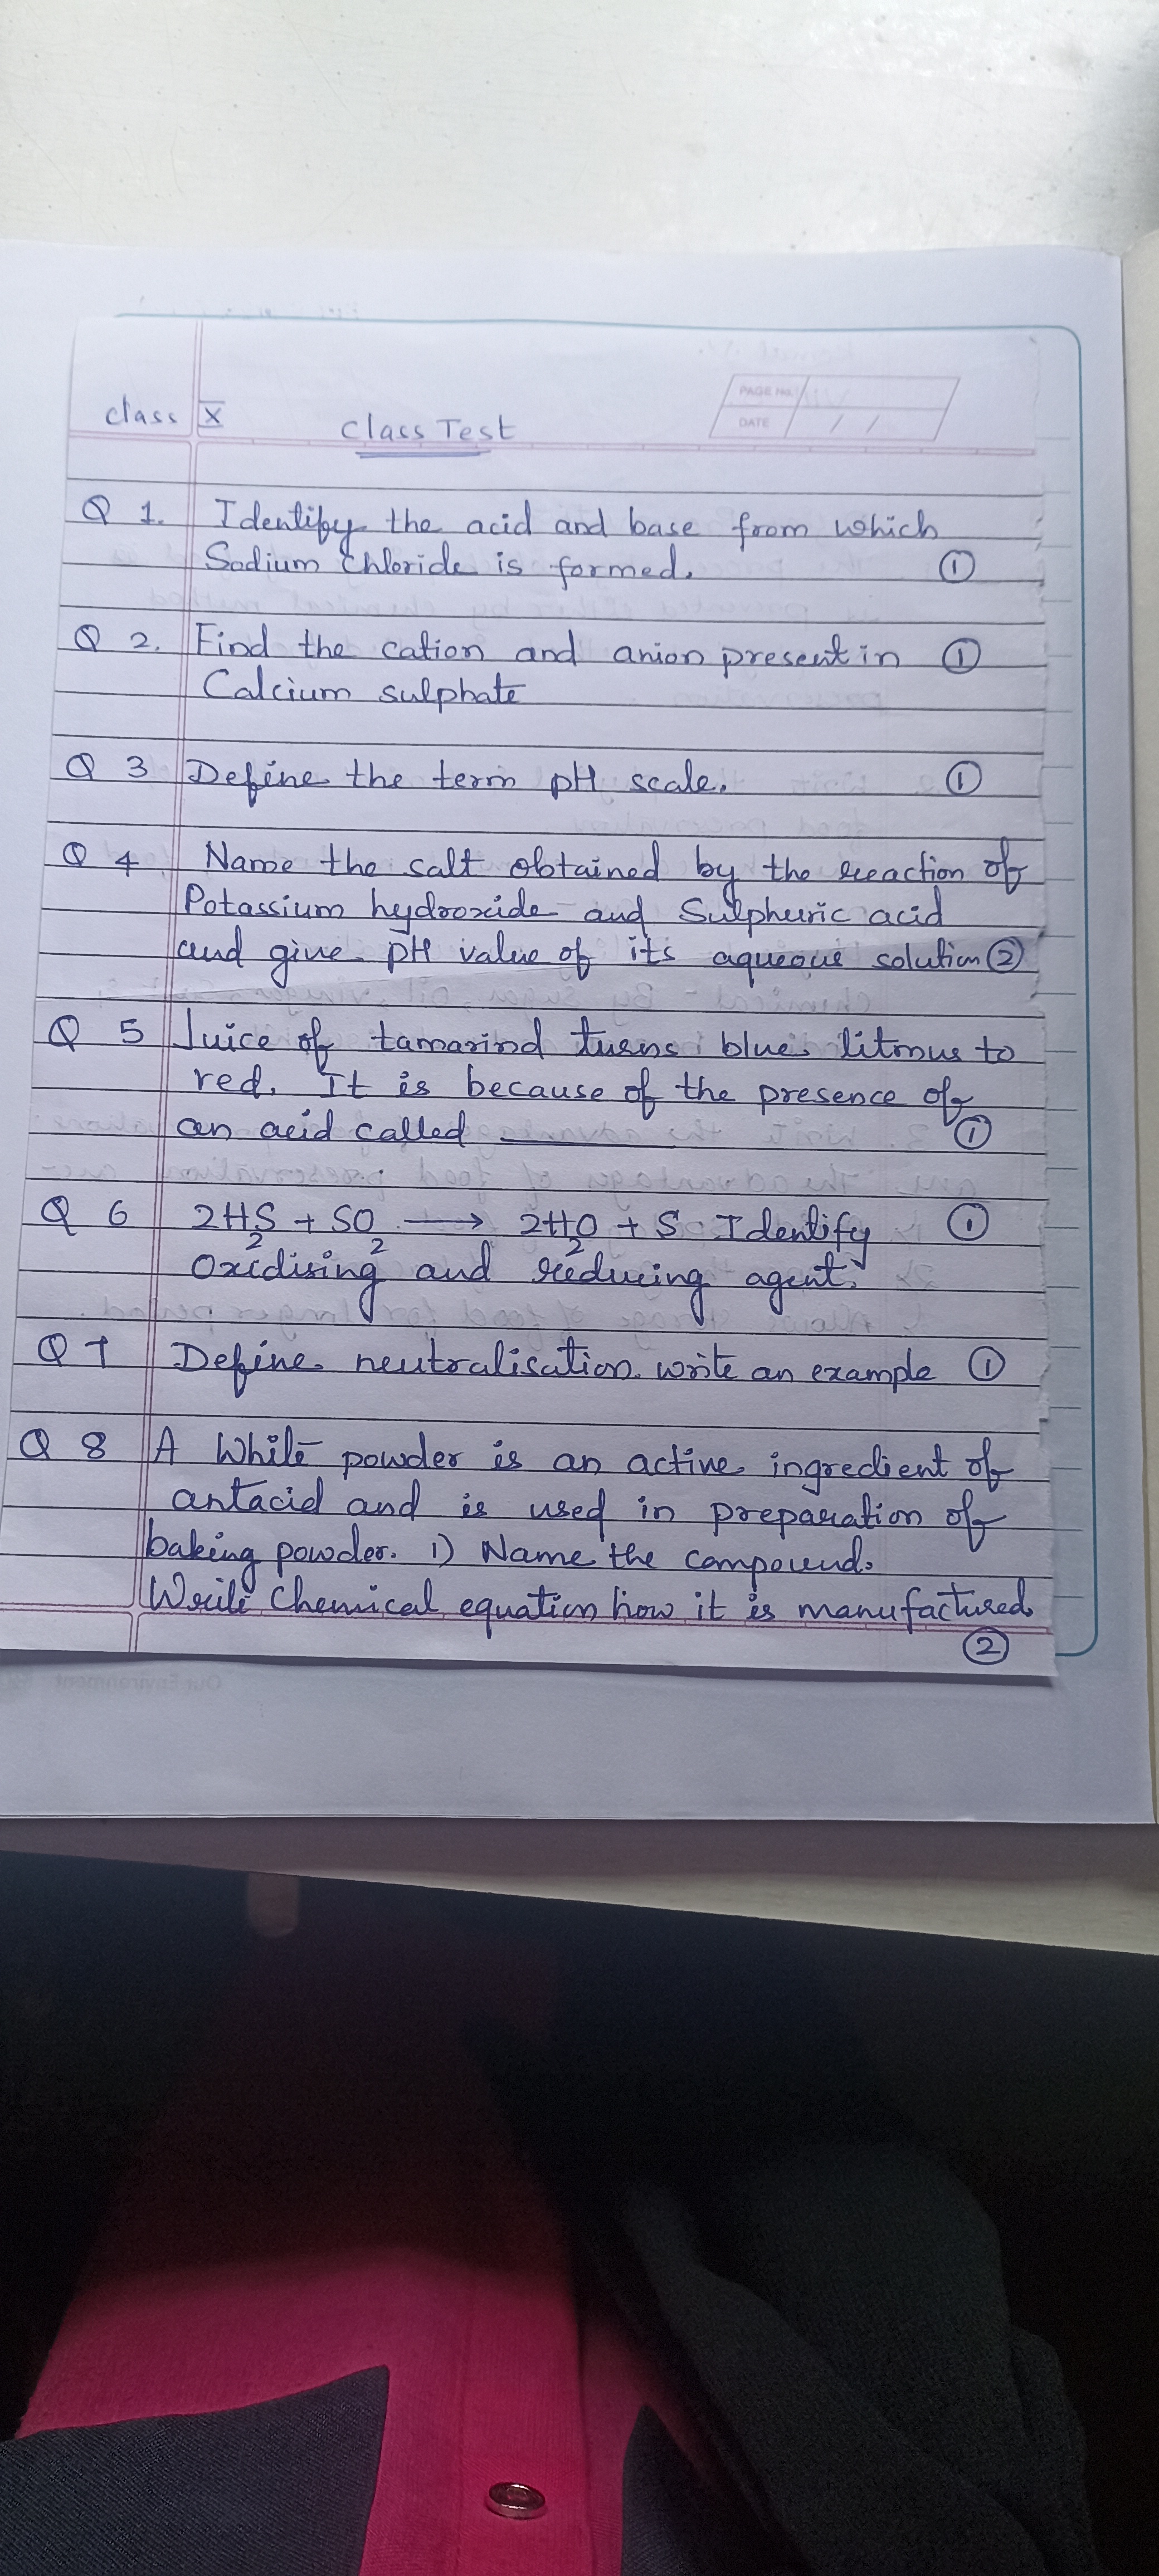 class X
Class Test
PAGE No.
DATE / /
Q 1. Identify the acid and base from which
Sodium Chloride is formed. ①
Q 2. Find the cation and anion present in ①
Calcium sulphate
Q 3 Define the term pH scale. ①
Q 4 Name the salt obtained by the reaction of
Potassium hydroxide and Sulphuric acid
and give pH value of its aqueous solution ②
Q 5 Juice of tamarind turns blue litmus to
red. It is because of the presence of
an acid called ________ ①
Q 6 2H₂S + SO₂ → 2H₂O + S Identify ①
Oxidising and reducing agent.
Q 7 Define neutralisation. write an example ①
Q 8 A White powder is an active ingredient of
antacid and is used in preparation of
baking powder. 1) Name the compound.
Write Chemical equation how it is manufactured
②